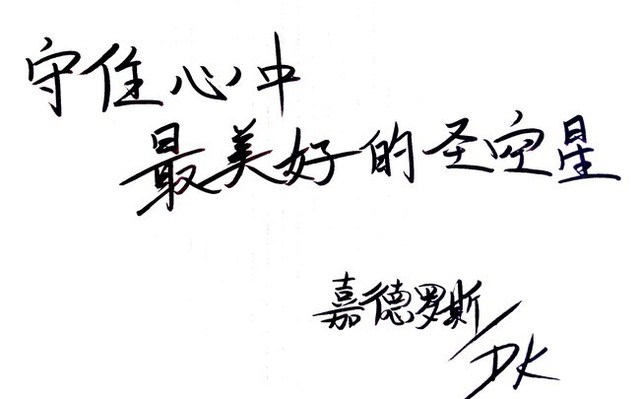 守住心中
最美好的圣空星
嘉德罗斯/DK